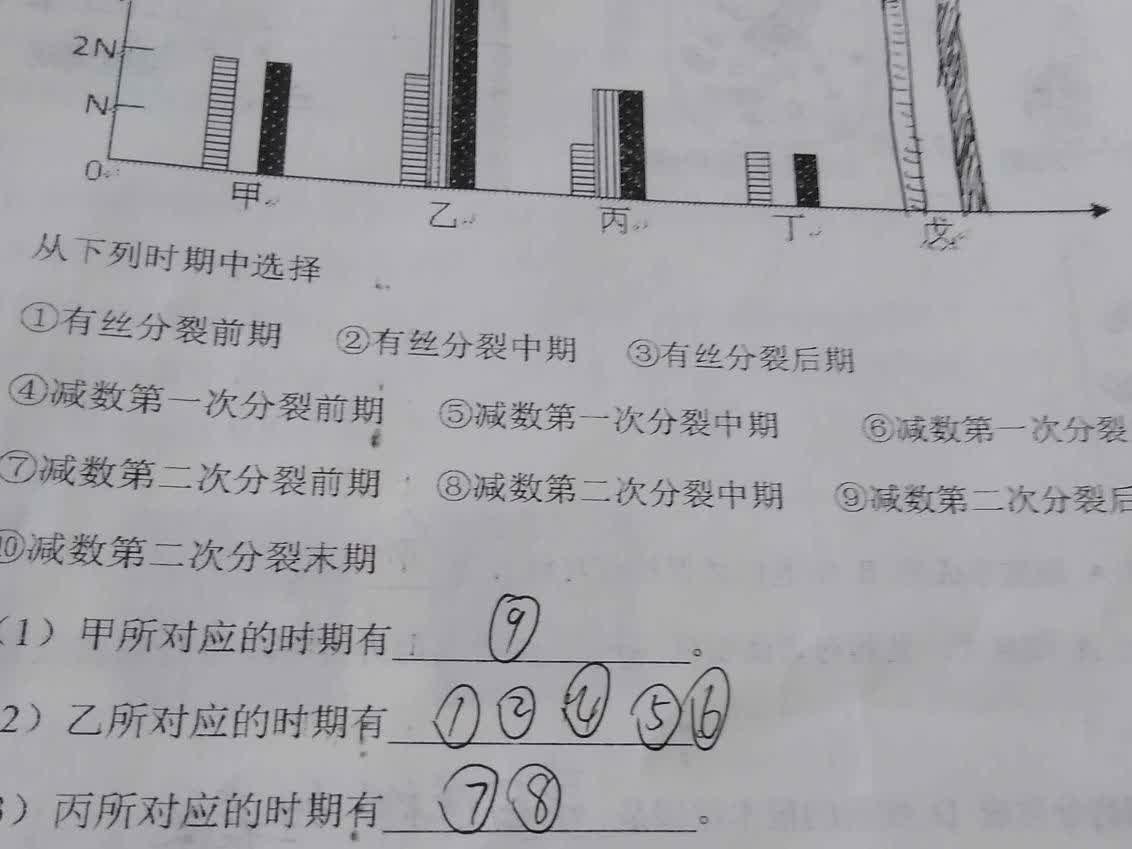 2N
N
0
甲 乙 丙 丁 戊
从下列时期中选择
①有丝分裂前期 ②有丝分裂中期 ③有丝分裂后期
④减数第一次分裂前期 ⑤减数第一次分裂中期 ⑥减数第一次分裂
⑦减数第二次分裂前期 ⑧减数第二次分裂中期 ⑨减数第二次分裂后
⑩减数第二次分裂末期
(1)甲所对应的时期有 ⑨ 。
2)乙所对应的时期有 ① ② ④ ⑤ ⑥
3)丙所对应的时期有 ⑦ ⑧ 。